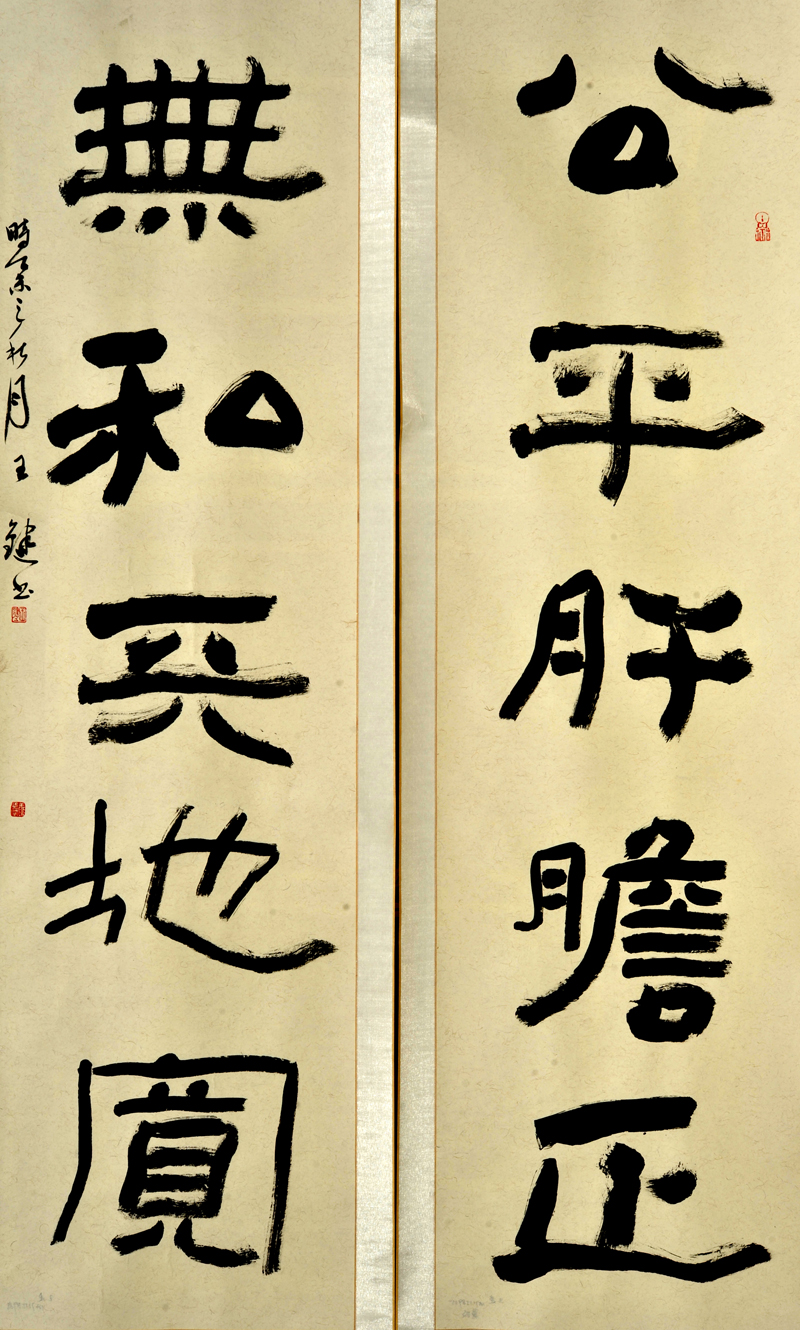 公平肝膽正
無私天地寬
時癸未之秋月王鍵書